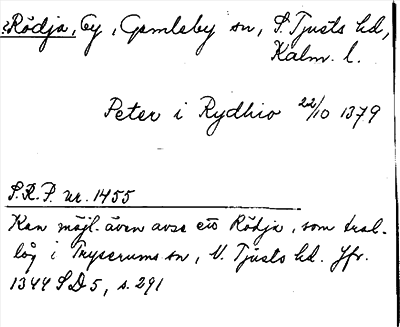 ?Rödja, by, Gamleby sn, S. Tjusts hd,
Kalm. l.
Peter i Rydhio 22/10 1379
S.R.P. nr. 1455
Kan möjl. även avse ett Rödja, som tral.
låg i Tryserums sn, N. Tjusts hd. Jfr.
1344 SD 5, s. 291